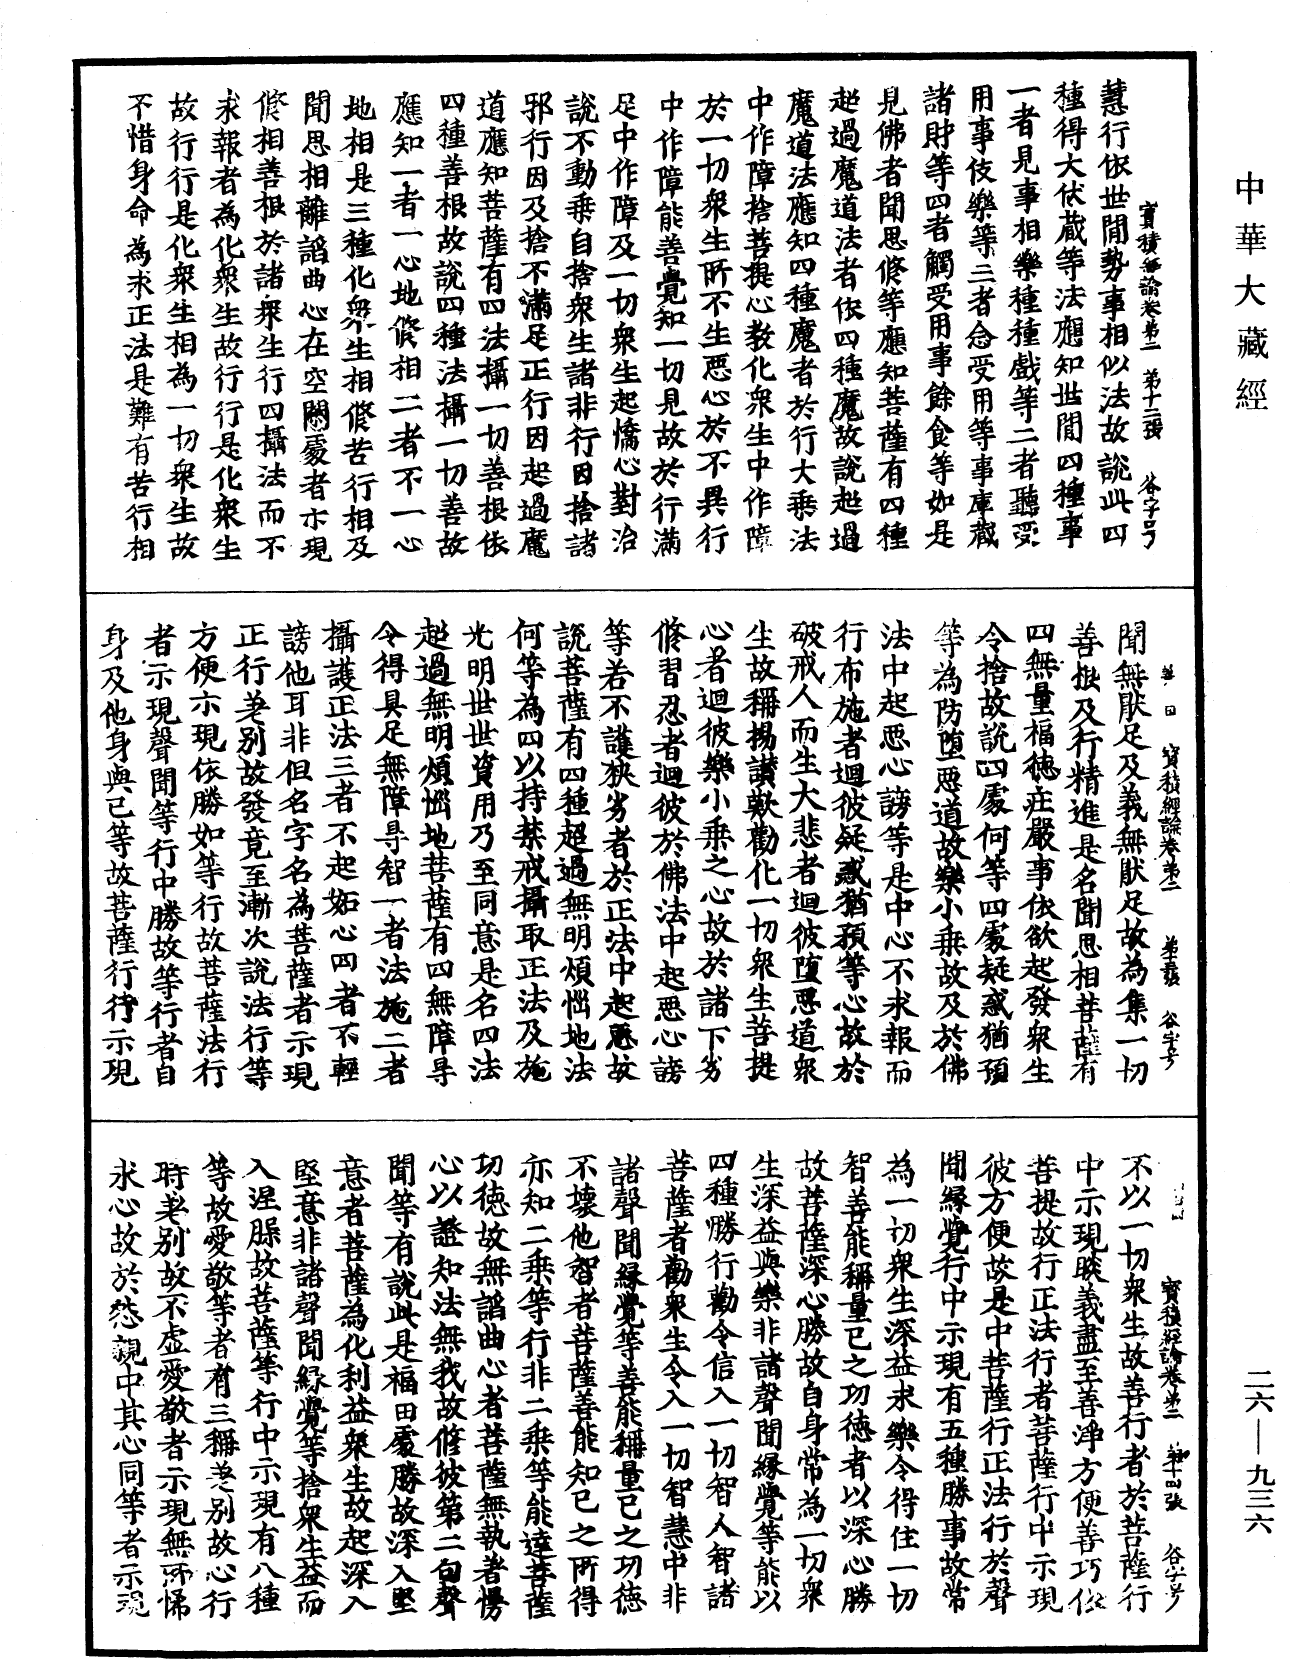 中華大藏經
寶積經論卷第二 第十二張 谷字号
慧行依世間勢事相似法故說此四
種得大伏藏等法應知世間四種事
一者見事相樂種種戲等二者聽受
用事伎樂等三者念受用等事庫藏
諸財等四者觸受用事餘食等如是
見佛者聞思修等應知菩薩有四種
超過魔道法者依四種魔故說超過
魔道法應知四種魔者於行大乘法
中作障捨菩提心教化衆生中作障
於一切衆生所不生惡心於不異行
中作障能善覺知一切見故於行滿
足中作障及一切衆生起憍心對治
說不動乘自捨衆生諸非行因捨諸
邪行因及捨不滿足正行因起過魔
道應知菩薩有四法攝一切善根依
四種善根故說四種法攝一切善故
應知一者一心地修相二者不一心
地相是三種化衆生相修苦行相及
聞思相離諂曲心在空閑處者亦現
修相善根於諸衆生行四攝法而不
求報者為化衆生故行行是化衆生
故行行是化衆生相為一切衆生故
不惜身命為求正法是難有苦行相
寶積經論卷第二 谷字号
聞無猒足及義無猒足故為集一切
善根及行精進是名聞思相菩薩有
四無量福德庄嚴事依欲起發衆生
令捨故說四處何等四處疑惑猶預
等為防墮惡道故樂小乘故及於佛
法中起惡心謗等是中心不求報而
行布施者迴彼疑惑猶預等心故於
破戒人而生大悲者迴彼墮惡道衆
生故稱揚讚歎勸化一切衆生菩提
心者迴彼樂小乘之心故於諸下劣
修習忍者迴彼於佛法中起惡心謗
等若不護狹劣者於正法中起惡故
說菩薩有四種超過無明煩惱地法
何等為四以持禁戒攝取正法及施
光明世世資用乃至同意是名四法
超過無明煩惱地菩薩有四無障㝵
令得具足無障㝵智一者法施二者
攝護正法三者不起妬心四者不輕
謗他耳非但名字名為菩薩者示現
正行差別故發竟至漸次說法行等
方便示現依勝如等行故菩薩法行
者示現聲聞等行中勝故等行者自
身及他身與已等故菩薩行行示現
寶積經論卷第二 第十四張 谷字号
不以一切衆生故善行者於菩薩行
中示現睒義盡至善淨方便善巧依
菩提故行正法行者菩薩行中示現
彼方便故是中菩薩行正法行於聲
聞緣覺行中示現有五種勝事故常
為一切衆生深益求樂令得住一切
智善能稱量已之功德者以深心勝
故菩薩深心勝故自身常為一切衆
生深益與樂非諸聲聞緣覺等能以
四種勝行勸令信入一切智人智諸
菩薩者勸衆生令入一切智慧中非
諸聲聞緣覺等善能稱量已之功德
不壞他智者菩薩善能知已之所得
亦知二乘等行非二乘等能達菩薩
功德故無諂曲心者菩薩無執者慢
心以證知法無我故修彼第二句聲
聞等有說此是福田處勝故深入堅
意者菩薩為化利益衆生故起深入
堅意非諸聲聞緣覺等捨衆生益而
入涅槃故菩薩等行中示現有八種
等故愛敬等者有三稱差別故心行
時差別故不虛愛敬者示現無諦悕
求心故於怨親中其心同等者示現
二六—九三六